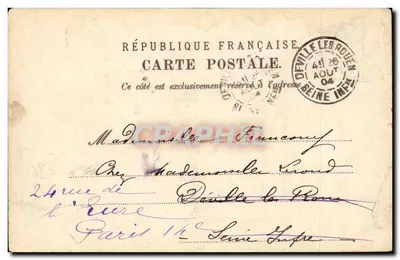 RÉPUBLIQUE FRANÇAISE
CARTE POSTALE
Ce côté est exclusivement réservé à l'adresse
DEVILLE LES ROUEN
26
AOUT
04
SEINE INFRE
Mademoiselle Francony
Chez Mademoiselle
Déville les Rouen
Seine Infre
24 rue de
l'Eure
Paris 14e